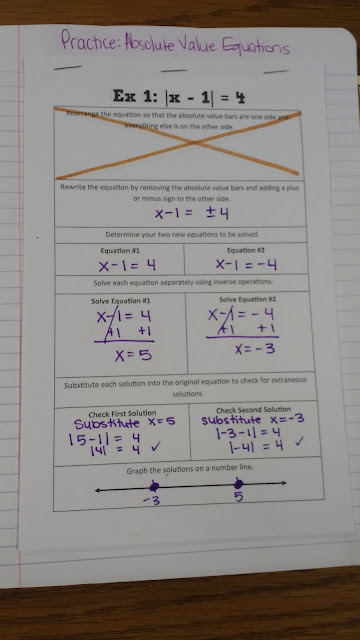 Practice: Absolute Value Equations
Ex 1: |x - 1| = 4
Rearrange the equation so that the absolute value bars are one side and
everything else is on the other side.
Rewrite the equation by removing the absolute value bars and adding a plus
or minus sign to the other side.
x-1 = ±4
Determine your two new equations to be solved.
Equation #1
x-1 = 4
Equation #2
x-1 = -4
Solve each equation separately using inverse operations.
Solve Equation #1
x-1 = 4
+1 +1
x = 5
Solve Equation #2
x-1 = -4
+1 +1
x = -3
Substitute each solution into the original equation to check for extraneous
solutions.
Check First Solution
Substitute x=5
|5-1| = 4
|4| = 4 ✓
Check Second Solution
Substitute x=-3
|-3-1| = 4
|-4| = 4 ✓
Graph the solutions on a number line.
-3 5